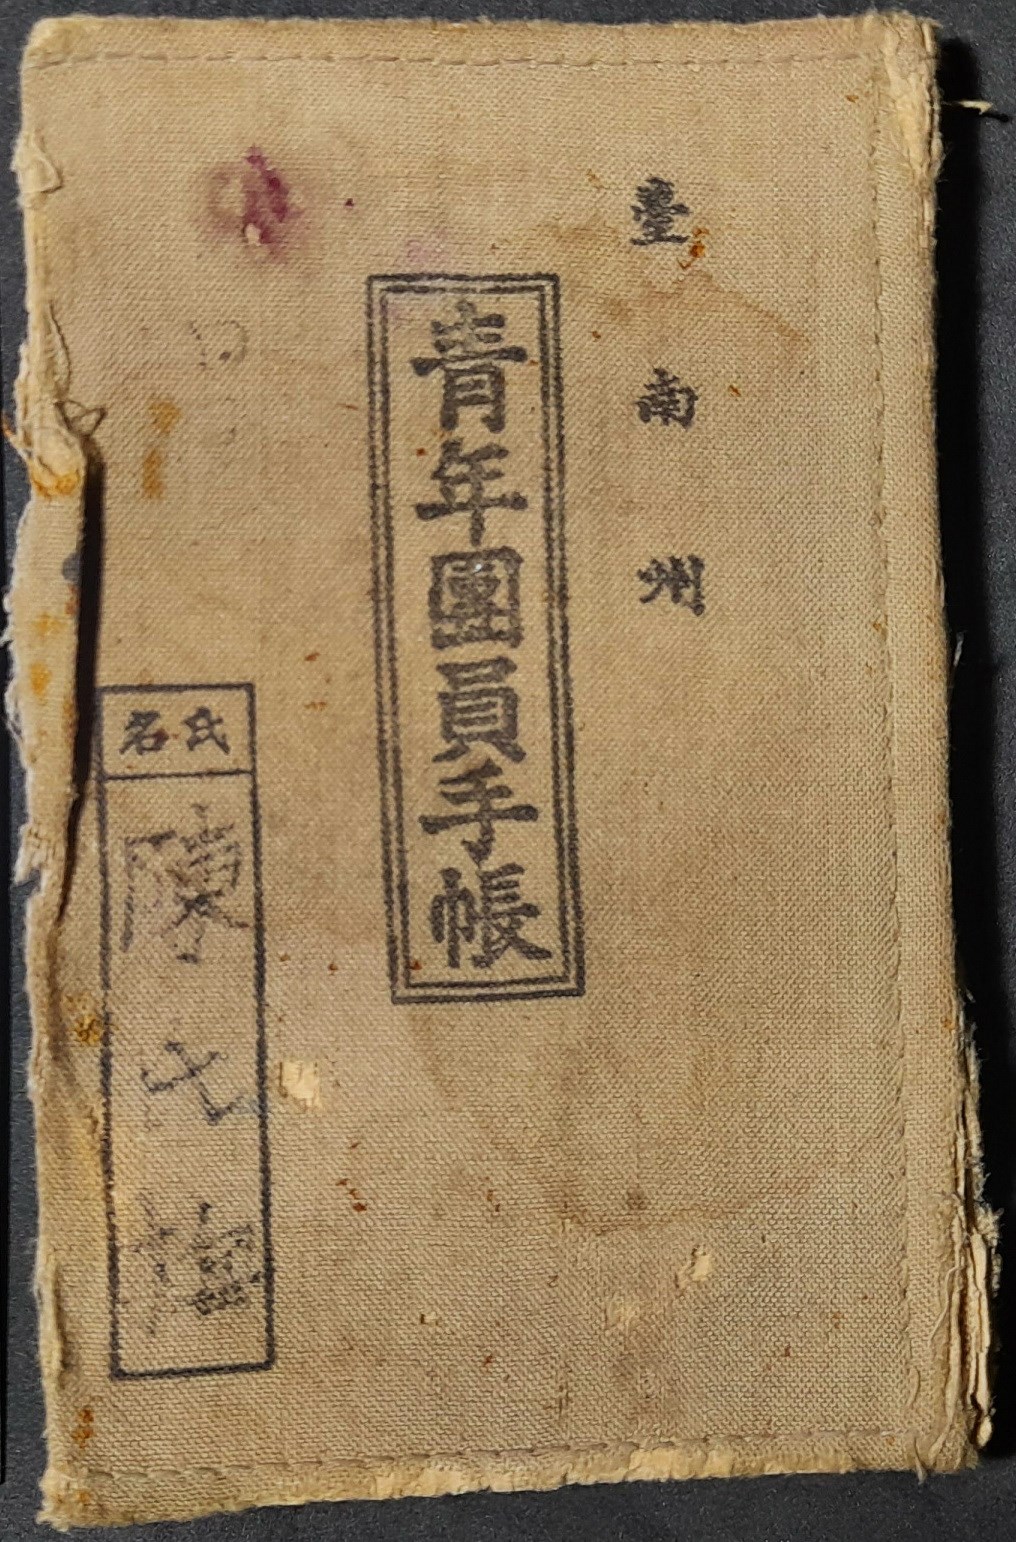 臺南州
青年團員手帳
氏名
陳七